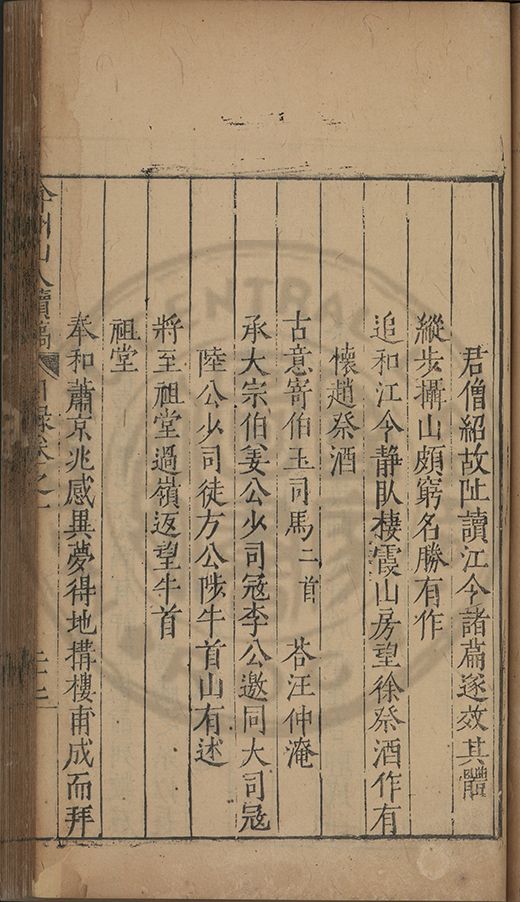 君僧紹故阯讀江令諸篇遂效其體
縱步攝山頗窮名勝有作
追和江令静臥棲霞山房望徐祭酒作有
懷趙祭酒
古意寄伯玉司馬二首　荅汪仲淹
承大宗伯姜公少司冦李公邀同大司冦
陸公少司徒方公陟牛首山有述
將至祖堂過嶺返望牛首
祖堂
奉和蕭京兆感異夢得地搆樓甫成而拜
州山人續稿　目録卷之一